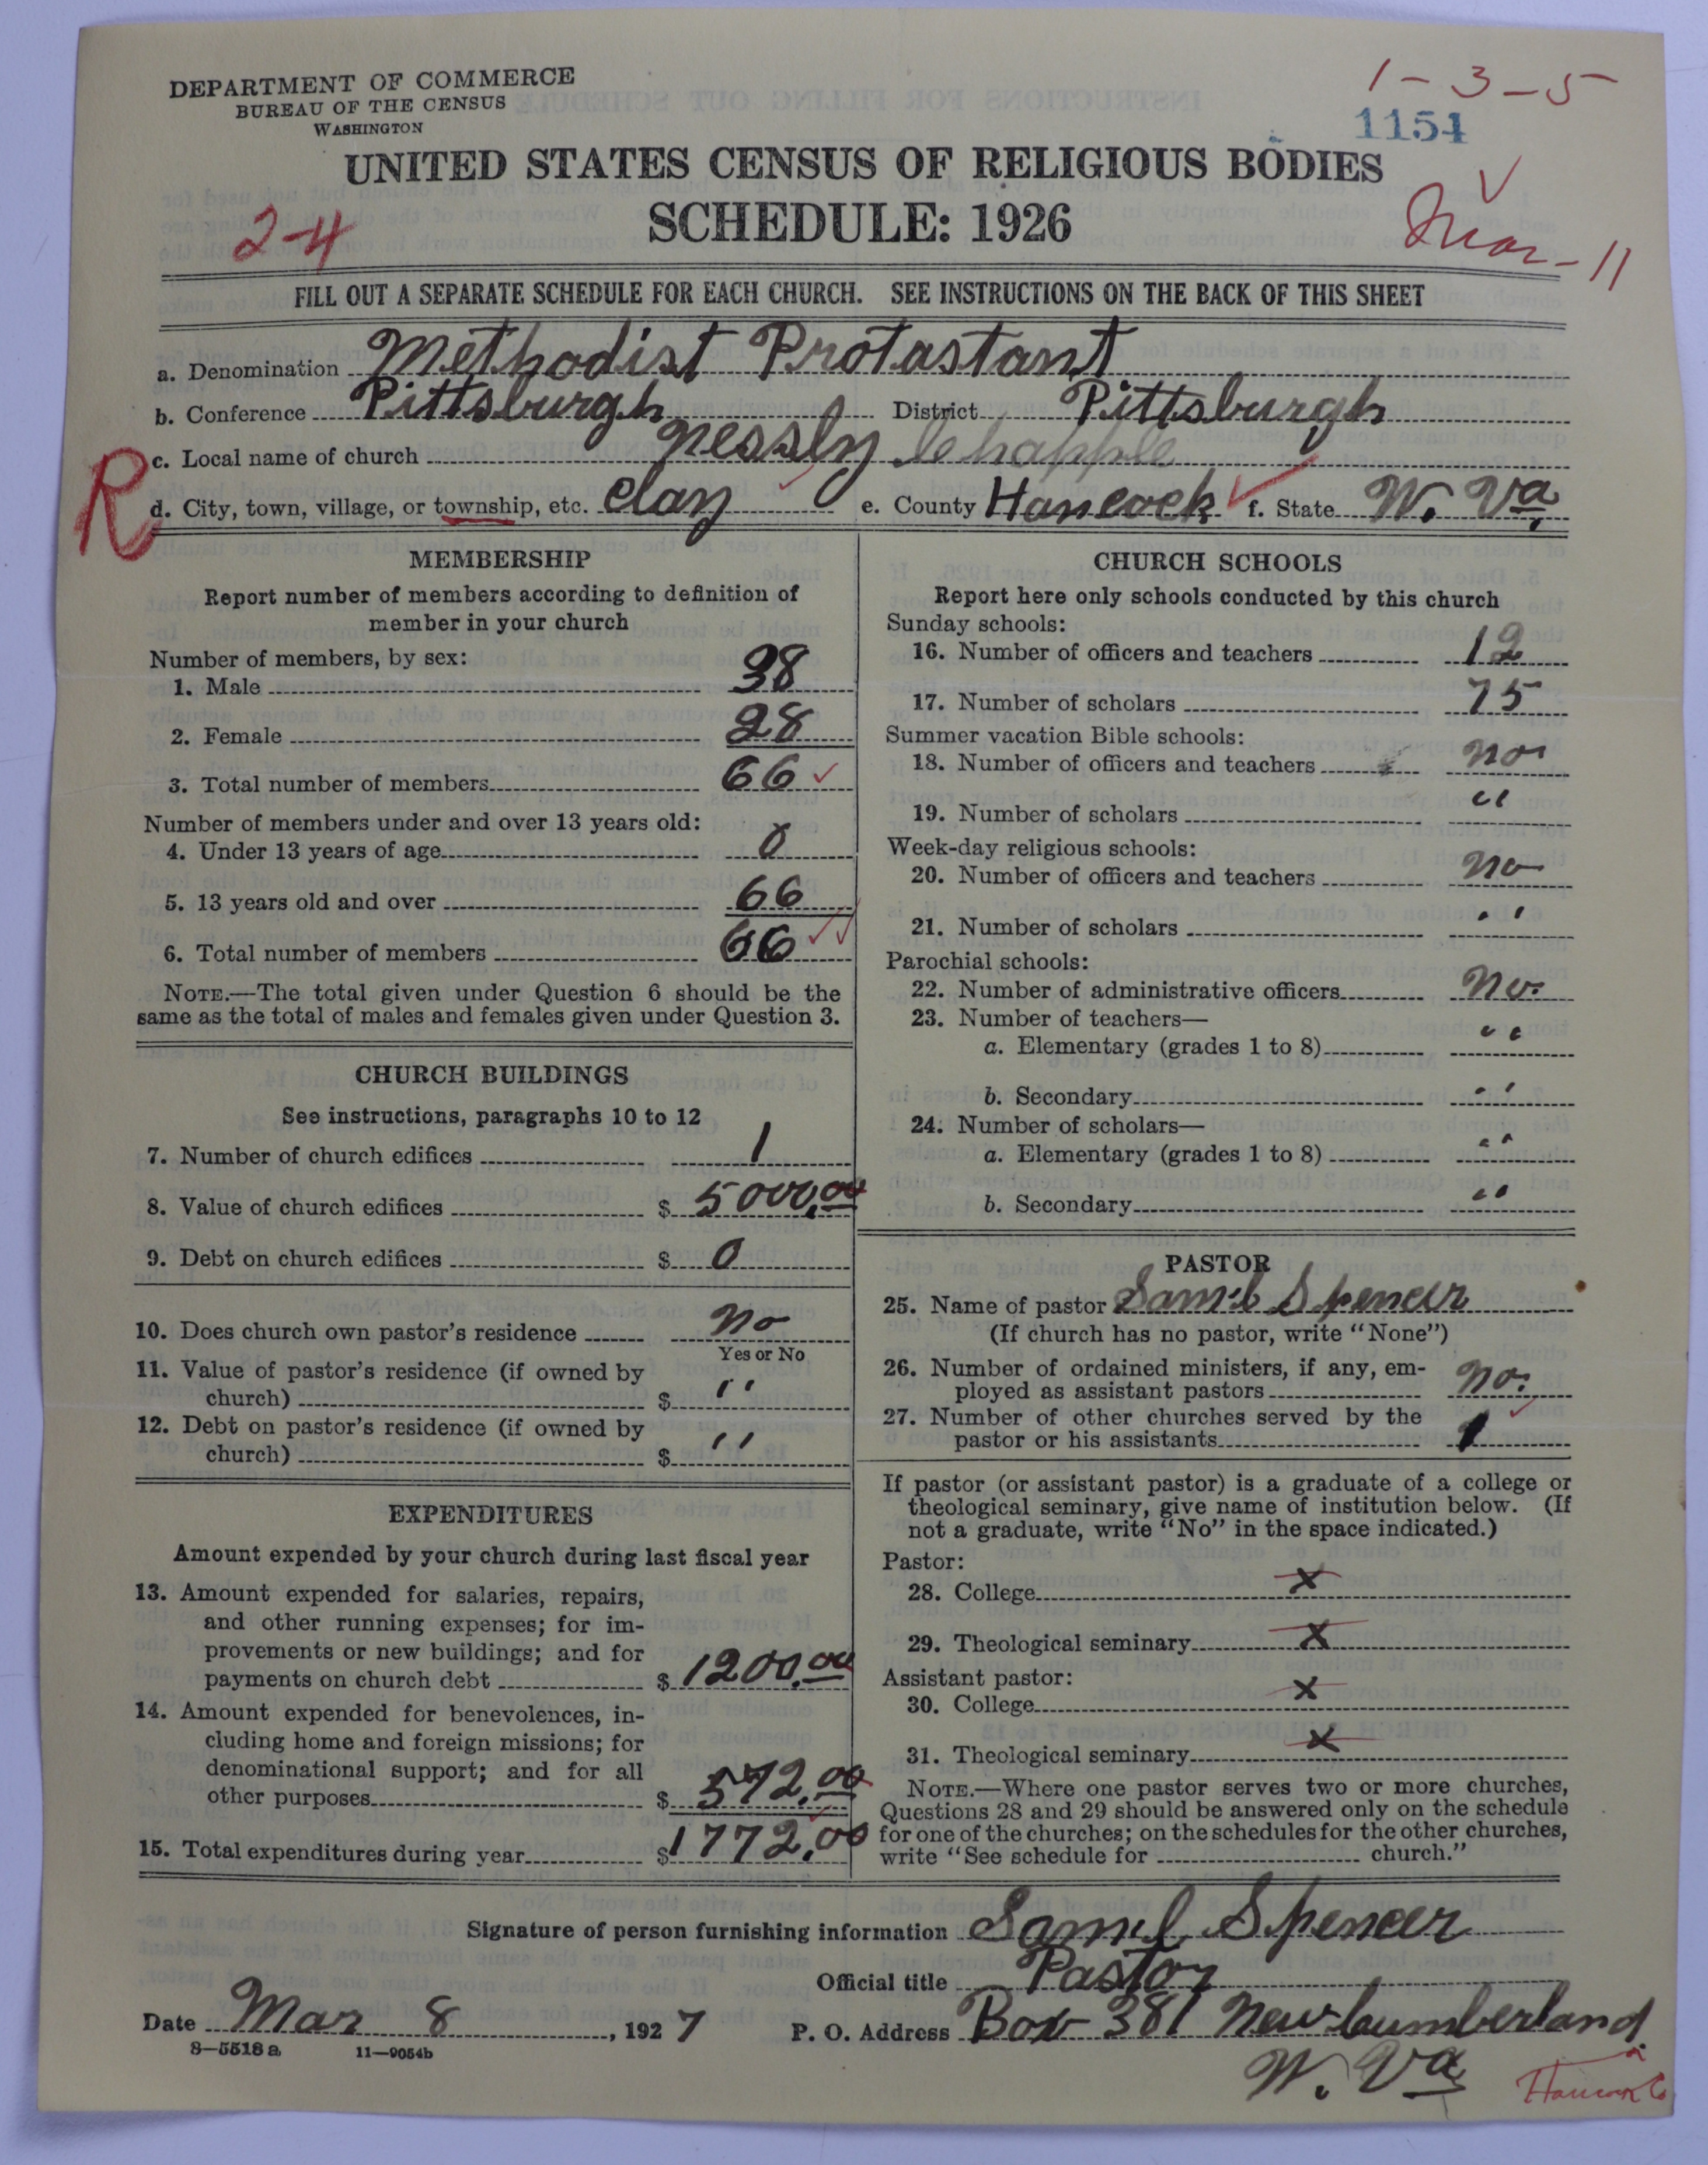 DEPARTMENT OF COMMERCE
BUREAU OF THE CENSUS
WASHINGTON
1-3-5
1154
UNITED STATES CENSUS OF RELIGIOUS BODIES
SCHEDULE: 1926
2-4
Mar-11
FILL OUT A SEPARATE SCHEDULE FOR EACH CHURCH. SEE INSTRUCTIONS ON THE BACK OF THIS SHEET
a. Denomination Methodist Protastant
b. Conference Pittsburgh District Pittsburgh
c. Local name of church Nessly Chapple
R
d. City, town, village, or township, etc. Clay e. County Hancock f. State W. Va.
MEMBERSHIP
Report number of members according to definition of
member in your church
Number of members, by sex:
1. Male 38
2. Female 28
3. Total number of members 66
Number of members under and over 13 years old:
4. Under 13 years of age 0
5. 13 years old and over 66
6. Total number of members 66
NOTE.—The total given under Question 6 should be the
same as the total of males and females given under Question 3.
CHURCH BUILDINGS
See instructions, paragraphs 10 to 12
7. Number of church edifices 1
8. Value of church edifices $ 5000.00
9. Debt on church edifices $ 0
10. Does church own pastor's residence No
Yes or No
11. Value of pastor's residence (if owned by
church) $ "
12. Debt on pastor's residence (if owned by
church) $ "
EXPENDITURES
Amount expended by your church during last fiscal year
13. Amount expended for salaries, repairs,
and other running expenses; for im-
provements or new buildings; and for
payments on church debt $ 1200.00
14. Amount expended for benevolences, in-
cluding home and foreign missions; for
denominational support; and for all
other purposes $ 572.00
15. Total expenditures during year $ 1772.00
CHURCH SCHOOLS
Report here only schools conducted by this church
Sunday schools:
16. Number of officers and teachers 12
17. Number of scholars 75
Summer vacation Bible schools:
18. Number of officers and teachers no
19. Number of scholars "
Week-day religious schools:
20. Number of officers and teachers no
21. Number of scholars "
Parochial schools:
22. Number of administrative officers No.
23. Number of teachers—
a. Elementary (grades 1 to 8) "
b. Secondary "
24. Number of scholars—
a. Elementary (grades 1 to 8) "
b. Secondary "
PASTOR
25. Name of pastor Saml Spencer
(If church has no pastor, write "None")
26. Number of ordained ministers, if any, em-
ployed as assistant pastors No.
27. Number of other churches served by the
pastor or his assistants 1
If pastor (or assistant pastor) is a graduate of a college or
theological seminary, give name of institution below. (If
not a graduate, write "No" in the space indicated.)
Pastor:
28. College X
29. Theological seminary X
Assistant pastor:
30. College X
31. Theological seminary X
NOTE.—Where one pastor serves two or more churches,
Questions 28 and 29 should be answered only on the schedule
for one of the churches; on the schedules for the other churches,
write "See schedule for church."
Signature of person furnishing information Saml Spencer
Official title Pastor
Date Mar 8, 1927 P. O. Address Box 381 New Cumberland
8-5518 a 11-9054b
W. Va
Hancock Co